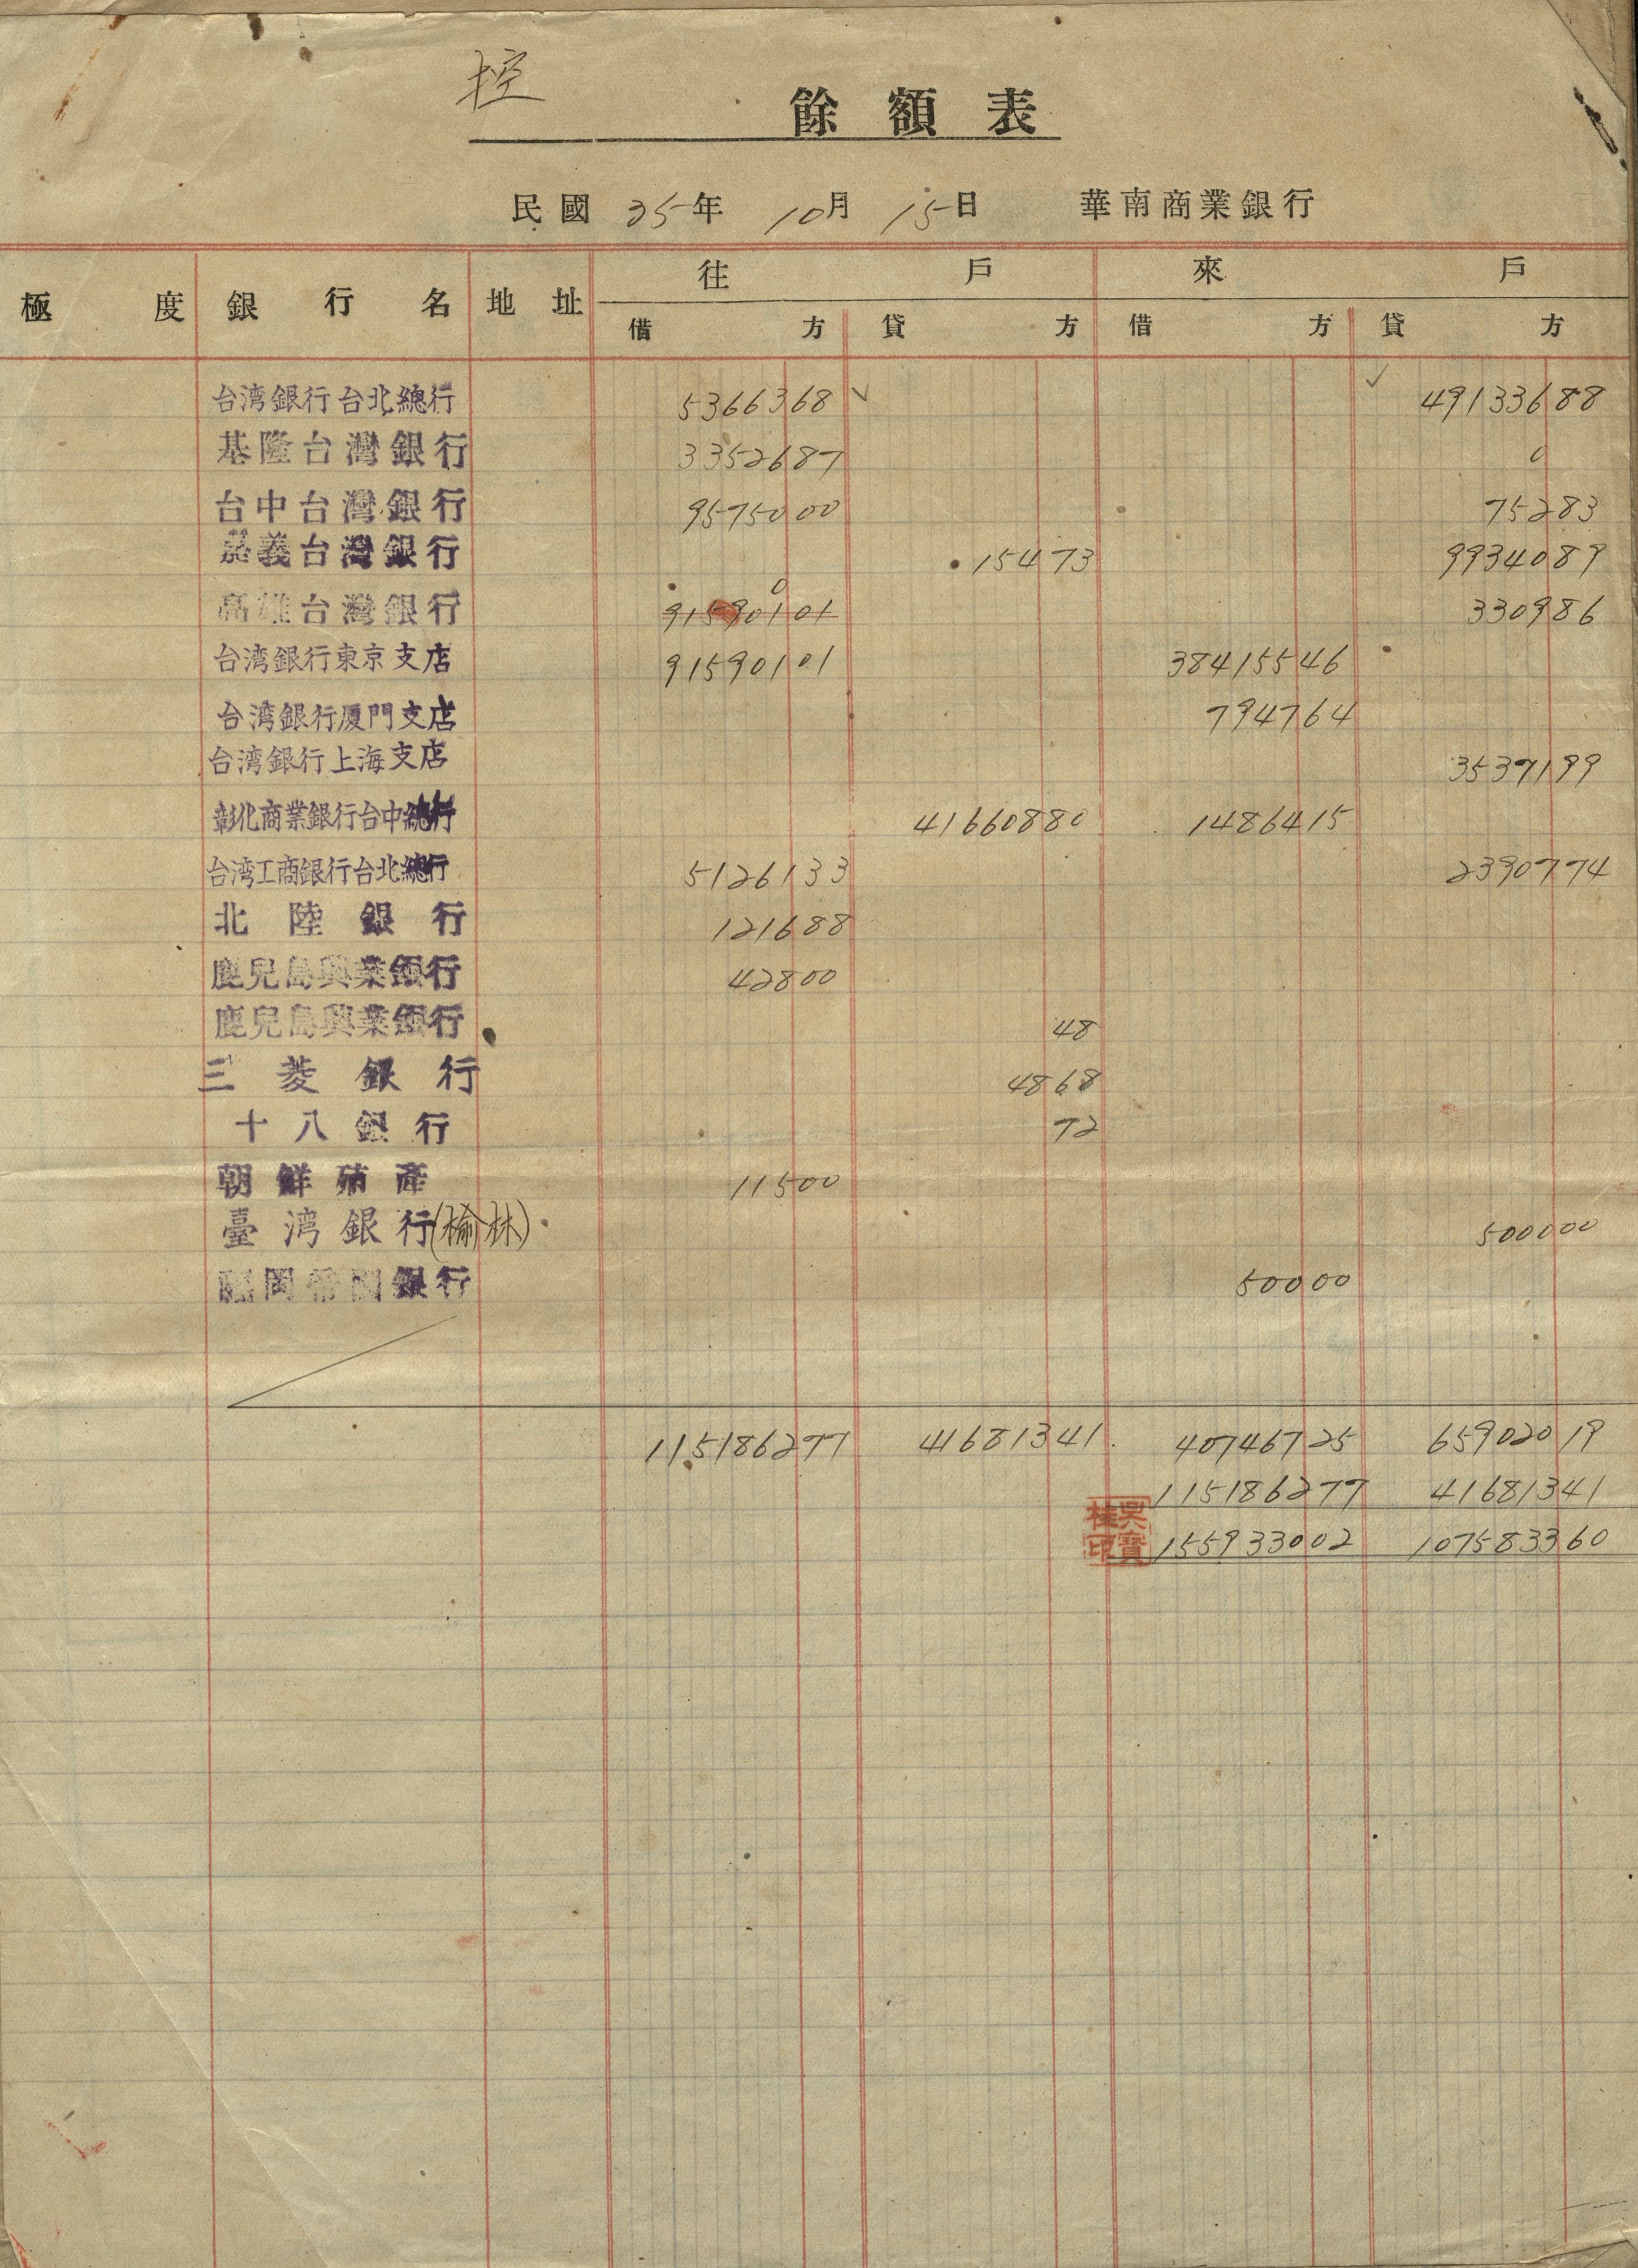 控
餘額表
民國 35年 10月 15日 華南商業銀行
極度 銀行名 地址 往戶 來戶
借方 貸方 借方 貸方
台湾銀行台北總行 5366368 ✓ ✓ 49133688
基隆台灣銀行 3352687 0
台中台灣銀行 9575000 75283
嘉義台灣銀行 15473 9934089
0
高雄台灣銀行 91590101 330986
台湾銀行東京支店 91590101 38415546
台湾銀行厦門支店 794764
台湾銀行上海支店 3537199
彰化商業銀行台中總行 41660880 1486415
台湾工商銀行台北總行 5126133 2390774
北陸銀行 121688
鹿兒島興業銀行 42800
鹿兒島興業銀行 48
三菱銀行 4868
十八銀行 72
朝鮮殖產 11500
臺湾銀行(榆林) 500000
岡帝國銀行 50000
115186277 41681341 40746725 65902019
115186277 41681341
155933002 107583360
吳寶桂印